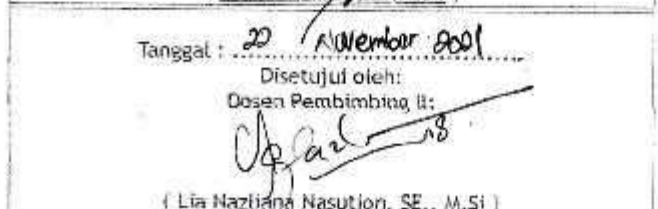 Tanggal : 22 November 2021
Disetujui oleh:
Dosen Pembimbing II:
( Lia Nazliana Nasution, SE., M.Si )